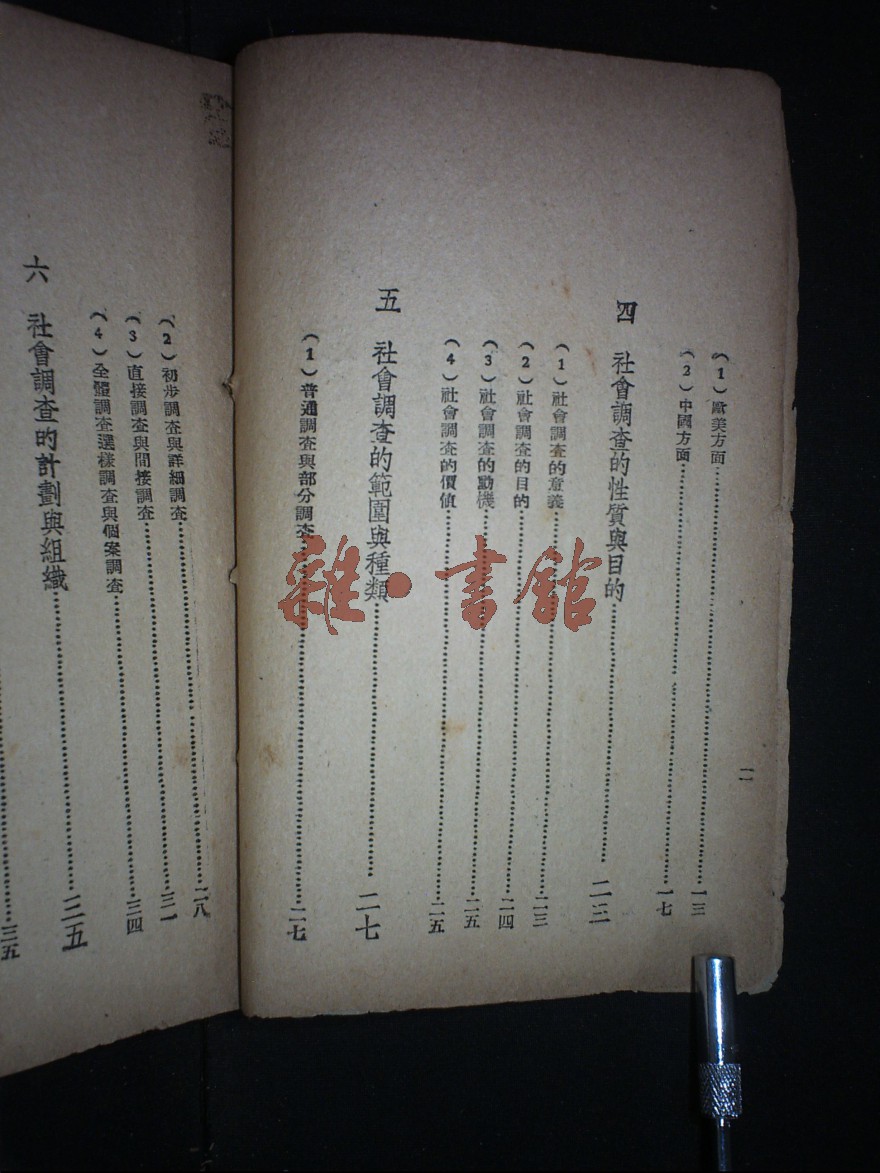 (1)歐美方面……一三
(2)中國方面……一七
四 社會調查的性質與目的……二三
(1)社會調查的意義……二三
(2)社會調查的目的……二四
(3)社會調查的動機……二五
(4)社會調查的價值……二五
五 社會調查的範圍與種類……二七
(1)普通調查與部分調查……二七
二
(2)初步調查與詳細調查……二八
(3)直接調查與間接調查……三一
(4)全體調查選樣調查與個案調查……三四
六 社會調查的計劃與組織……三五
……三五
雜·書館